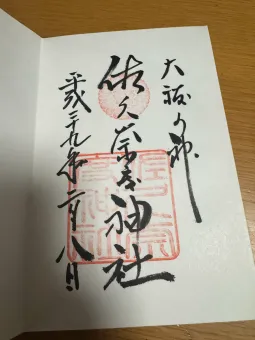 大祓の神
佐久奈度神社
平成二十九年二月八日